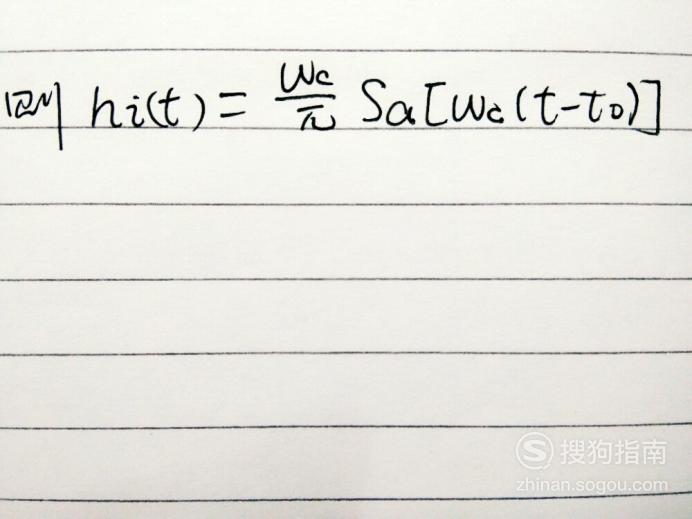 则 hi(t) = ωc/π Sa[ωc(t-t0)]
搜狗指南
zhinan.sogou.com